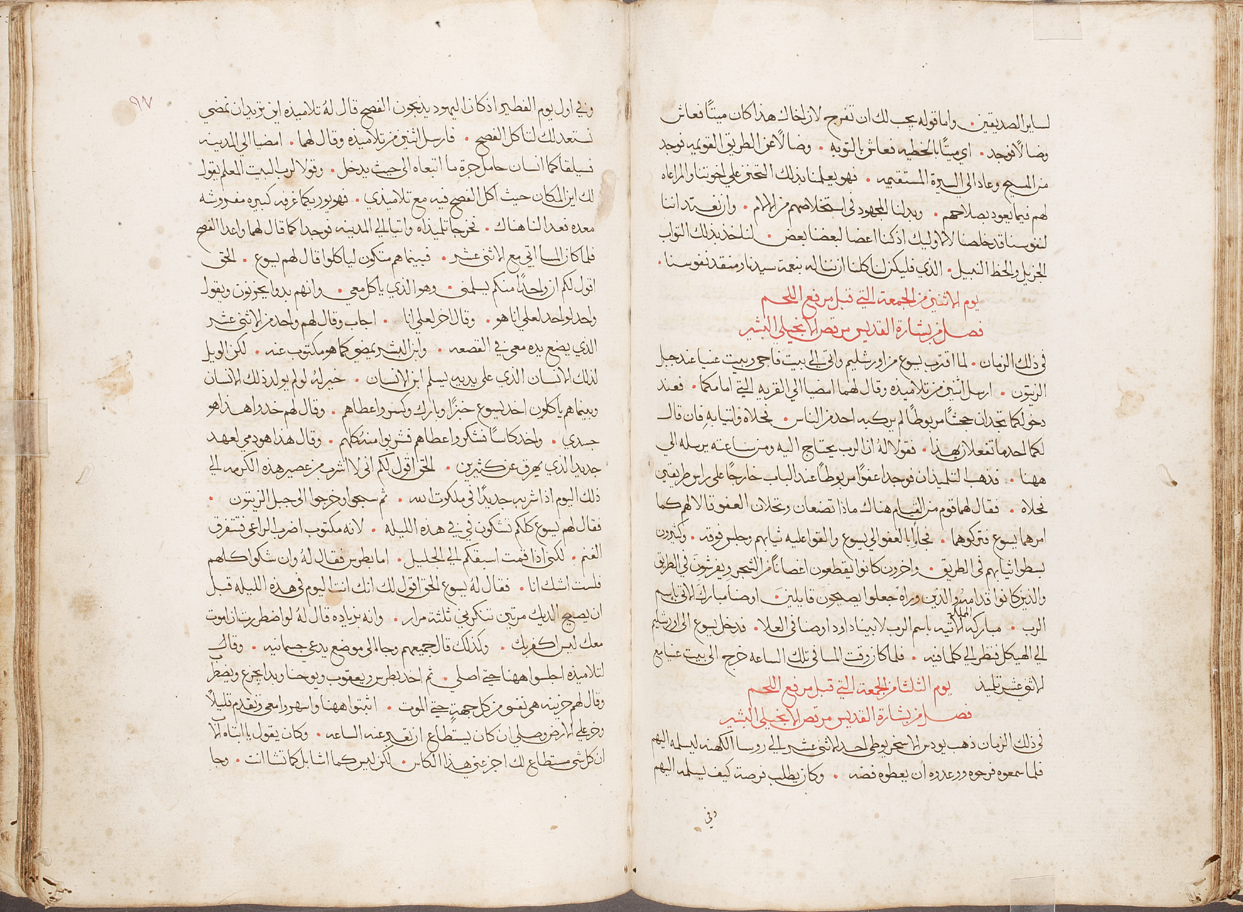 لساير الصديقين. واما قوله يجب لك ان تفرح لان اخاك هذا كان ميتًا فعاش
وضالًا فوجد. اي ميتًا بالخطيه فعاش بالتوبه. وضالًا عن الطريق القويمه فوجد
من المسيح وعاد الى السيرة المستقيمه. فهو يعلمنا بذلك التحنن على اخوتنا والمراعاه
لهم فيما يعود بصلاحهم. وبدلنا المجهود في استخلاصهم من الاثام. وان نعتد اننا
لنفوسنا قد خلصنا لا لاوليك اذ كنا اعضا لبعضنا بعض. لناخذ بذلك الثواب
الجزيل والحظ النبيل. الذي فليكن لنا كلنا ان نناله بنعمة سيدنا ومنقذ نفوسنا.
يوم الاثنين من الجمعة التي قبل مرفع اللحم
فصل من بشارة القديس مرقص الانجيلي البشير
في ذلك الزمان. لما اقترب يسوع من اورشليم وافى الى بيت فاجي وبيت عنيا عند جبل
الزيتون. ارسل اثنين من تلاميذه وقال لهما امضيا الى القرية التي امامكما. فعند
دخولكما تجدان جحشًا مربوطًا لم يركبه احد من الناس. فحلاه واتيا به فان قال
لكما احد ما تفعلان بهذا. فقولا له ان الرب يحتاج اليه ومن ساعته يرسله الى
ههنا. فذهب التلميذان فوجدا عفوًا مربوطًا عند الباب خارجًا على راس طريقين
فحلاه. فقال لهما قوم من القيام هناك ماذا تصنعان وتحلان العفو قالا لهم كما
امرهما يسوع فتركوهما. فجاءا بالعفو الى يسوع والقوا عليه ثيابهم وجلس فوقه. وكثيرون
بسطوا ثيابهم في الطريق. واخرون كانوا يقطعون اغصانًا من الشجر ويفرشون في الطريق
والذين كانوا قدامه والذين وراه جعلوا يصيحون قايلين. اوصنا مبارك الاتي باسم
الرب. مباركه المملكه الاتيه باسم الرب لابينا داود اوصنا في العلا. فدخل يسوع الى اورشليم
الى الهيكل فنظر الى كلما فيه. فلما كان وقت المسا في تلك الساعه خرج الى بيت عنيا مع
الاثنى عشر تلميذ يوم الثلثا من الجمعة التي قبل مرفع اللحم
فصل من بشارة القديس مرقص الانجيلي البشير
في ذلك الزمان ذهب يودس الاسخريوطي احد الاثنى عشر الى روسا الكهنه ليسلمه اليهم
فلما سمعوه فرحوه ووعدوه ان يعطوه فضه. وكان يطلب فرصة كيف يسلمه اليهم
وفي
٩٧
وفي اول يوم الفطير اذ كان اليهود يذبحون الفصح قال له تلاميذه اين تريد ان نمضي
نستعد لك لتاكل الفصح. فارسل اثنين من تلاميذه وقال لهما. امضيا الى المدينه
فسيلقاكما انسان حامل جرة ما اتبعاه الى حيث يدخل. وقولا لرب البيت المعلم يقول
لك اين المكان حيث اكل الفصح فيه مع تلاميذي. فهو يوريكما غرفه كبيره مفروشه
معده فعدا لنا هناك. فخرجا تلميذاه واتيا الى المدينه فوجدا كما قال لهما واعدا الفصح
فلما كان المسا اتى مع الاثنى عشر. فبينما هم متكون لياكلوا قال لهم يسوع. الحق
اقول لكم ان واحدًا منكم يسلمني. وهو الذي ياكل معي. وانهم بدوا يحزنون ويقول
واحد لواحد لعلي انا هو. وقال اخر لعلي انا. اجاب وقال لهم واحد من الاثنى عشر
الذي يضع يده معي في القصعه. وابن البشر يمضي كما هو مكتوب عنه. لكن الويل
لذلك الانسان الذي على يديه يسلم ابن الانسان. خير له لو لم يولد ذلك الانسان
وبينما هم ياكلون اخذ يسوع خبزًا وبارك وكسر واعطاهم. وقال لهم خذوا هذا هو
جسدي. واخذ كاسًا فشكر واعطاهم فشربوا منه كلهم. وقال هذا هو دمي لعهد
جديد الذي يهرق عن كثيرين. الحق اقول لكم انى لا اشرب من عصير هذه الكرمه الى
ذلك اليوم اذا شربه جديدًا في ملكوت الله. ثم سبحوا وخرجوا الى جبل الزيتون.
فقال لهم يسوع كلكم تشكون في في هذه الليله. لانه مكتوب اضرب الراعي فتتفرق
الغنم. لكني اذا قمت اسبقكم الى الجليل. اما بطرس فقال له وان شكوا كلهم
فلست اشك انا. فقال له يسوع الحق اقول لك انك انت اليوم في هذه الليله قبل
ان يصيح الديك مرتين تنكرني ثلثة مرار. وانه بزياده قال له لو اضطررت ان اموت
معك ليس اكفر بك. وكذلك قال جميعهم وجا الى موضع يدعى جسمانيه. وقال
لتلاميذه اجلسوا ههنا حتى اصلي. ثم اخذ بطرس ويعقوب ويوحنا وبدا يجزع ويضطر
وقال لهم حزينة هي نفسي من كل جهةٍ حتى الموت. اثبتوا ههنا واسهروا معي وتقدم قليلًا
وخر على الارض وصلى ان كان يستطاع ان تعبر عنه الساعه. وكان يقول يا ابتاه
ان كل شي مستطاع لك اجز عني هذا الكاس. لكن ليس كما اشا بل كما تشا انت. وجا